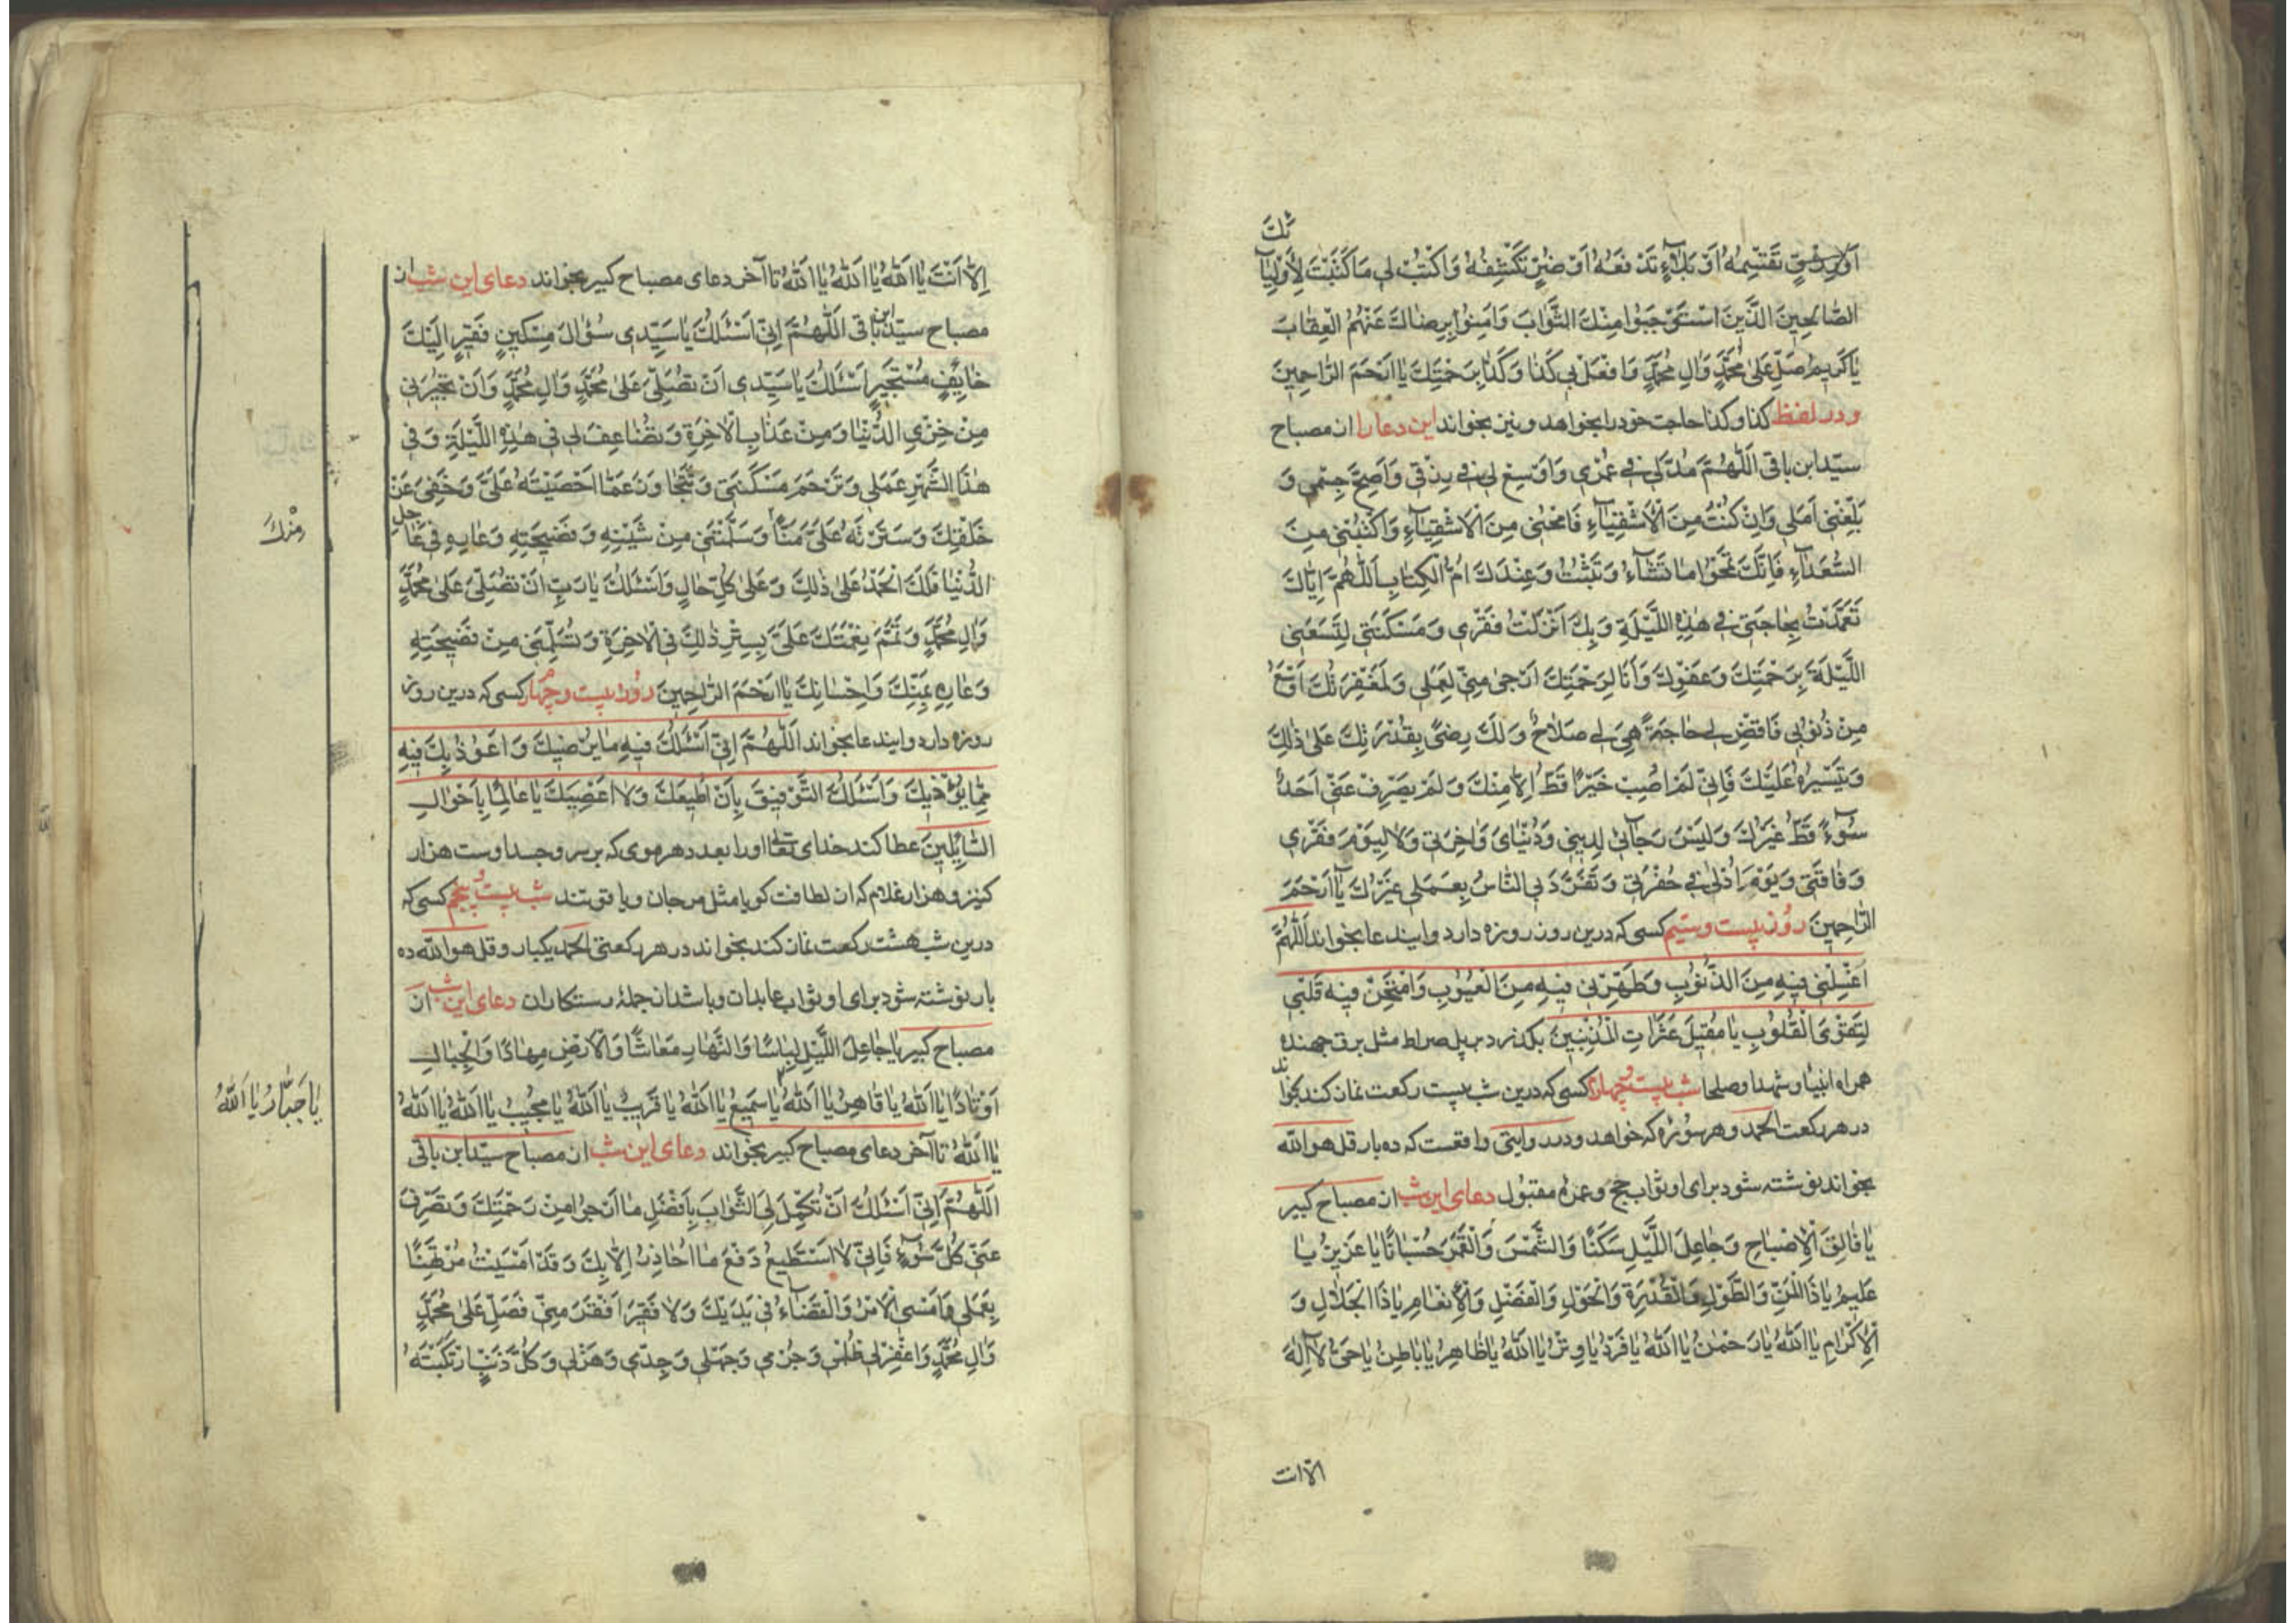 ئِكَ
اَوْ رِزْقٍ تَقْسِمُهُ اَوْ بَلَاءٍ تَدْفَعُهُ اَوْ ضُرٍّ تَكْشِفُهُ وَاكْتُبْ لِي مَا كَتَبْتَ لِاَوْلِيَآ
الصَّالِحِينَ الَّذِينَ اسْتَوْجَبُوا مِنْكَ الثَّوَابَ وَاٰمِنُوا بِرِضَاكَ عَنْهُمُ الْعِقَابَ
يَا كَرِيمُ صَلِّ عَلىٰ مُحَمَّدٍ وَاٰلِ مُحَمَّدٍ وَافْعَلْ بِي كَذَا وَكَذَا بِرَحْمَتِكَ يَا اَرْحَمَ الرَّاحِمِينَ
و در لفظ کذا و کذا حاجت خود را بخواهد و نیز بخواند این دعا را از مصباح
سیّد ابن باقی اَللّٰهُمَّ مُدَّ لِي فِي عُمْرِي وَاَوْسِعْ لِي فِي رِزْقِي وَاَصِحَّ جِسْمِي وَ
بَلِّغْنِي اَمَلِي وَاِنْ كُنْتُ مِنَ الْاَشْقِيَآءِ فَامْحُنِي مِنَ الْاَشْقِيَآءِ وَاكْتُبْنِي مِنَ
السُّعَدَآءِ فَاِنَّكَ تَمْحُوا مَا تَشَآءُ وَتُثْبِتُ وَعِنْدَكَ اُمُّ الْكِتَابِ اَللّٰهُمَّ اِيَّاكَ
تَعَمَّدْتُ بِحَاجَتِي فِي هٰذِهِ اللَّيْلَةِ وَبِكَ اَنْزَلْتُ فَقْرِي وَمَسْكَنَتِي لِتَسَعَنِي
اللَّيْلَةَ بِرَحْمَتِكَ وَعَفْوِكَ وَاَنَا لِرَحْمَتِكَ اَرْجىٰ مِنِّي لِعَمَلِي وَلَمَغْفِرَتُكَ اَوْسَعُ
مِنْ ذُنُوبِي فَاقْضِ لِي حَاجَةً هِيَ لِي صَلَاحٌ وَلَكَ رِضًى بِقُدْرَتِكَ عَلىٰ ذٰلِكَ
وَتَيْسِيرِهِ عَلَيْكَ فَاِنِّي لَمْ اُصِبْ خَيْرًا قَطُّ اِلَّا مِنْكَ وَلَمْ يَصْرِفْ عَنِّي اَحَدٌ
سُوءً قَطُّ غَيْرُكَ وَلَيْسَ رَجَآئِي لِدِينِي وَدُنْيَايَ وَاٰخِرَتِي وَلَا لِيَوْمِ فَقْرِي
وَفَاقَتِي وَيَوْمَ اُدْلىٰ فِي حُفْرَتِي وَتَفَرَّدَ بِي النَّاسُ بِعَمَلِي غَيْرُكَ يَا اَرْحَمَ
الرَّاحِمِينَ روز بیست و سیّم کسی که درین روز روزه دارد و ایندعا بخواند اَللّٰهُمَّ
اغْسِلْنِي فِيهِ مِنَ الذُّنُوبِ وَطَهِّرْنِي فِيهِ مِنَ الْعُيُوبِ وَامْتَحِنْ فِيهِ قَلْبِي
لِتَقْوَى الْقُلُوبِ يَا مُقِيلَ عَثَرَاتِ الْمُذْنِبِينَ بگذرد بر پل صراط مثل برق جهنده
همراه انبیا و شهدا و صلحا شب بیست و چهارم کسی که درین شب بیست رکعت نماز کند بخواند
در هر رکعت الحمد و هر سوره که خواهد و در روایتی واقعست که ده بار قل هو الله
بخواند نوشته شود برای او ثواب حج و عمره مقبول دعای این شب از مصباح کبیر
يَا فَالِقَ الْاِصْبَاحِ وَجَاعِلَ اللَّيْلِ سَكَنًا وَالشَّمْسَ وَالْقَمَرَ حُسْبَانًا يَا عَزِيزُ يَا
عَلِيمُ يَا ذَا الْمَنِّ وَالطَّوْلِ وَالْقُدْرَةِ وَالْحَوْلِ وَالْفَضْلِ وَالْاِنْعَامِ يَا ذَا الْجَلَالِ وَ
الْاِكْرَامِ يَا اَللّٰهُ يَا رَحْمٰنُ يَا اَللّٰهُ يَا فَرْدُ يَا وِتْرُ يَا اَللّٰهُ يَا ظَاهِرُ يَا بَاطِنُ يَا حَيُّ لَا اِلٰهَ
الّا انت
اِلَّا اَنْتَ يَا اَللّٰهُ يَا اَللّٰهُ يَا اَللّٰهُ تا آخر دعای مصباح کبیر بخواند دعای این شب از
مصباح سیّد ابن باقی اَللّٰهُمَّ اِنِّي اَسْئَلُكَ يَا سَيِّدِي سُؤَالَ مِسْكِينٍ فَقِيرٍ اِلَيْكَ
خَايِفٍ مُسْتَجِيرٍ اَسْئَلُكَ يَا سَيِّدِي اَنْ تُصَلِّيَ عَلىٰ مُحَمَّدٍ وَاٰلِ مُحَمَّدٍ وَاَنْ تُجِيرَنِي
مِنْ خِزْيِ الدُّنْيَا وَمِنْ عَذَابِ الْاٰخِرَةِ وَتُضَاعِفَ لِي فِي هٰذِهِ اللَّيْلَةِ وَفِي
هٰذَا الشَّهْرِ عَمَلِي وَتَرْحَمَ مَسْكَنَتِي وَتَتَجَاوَزَ عَمَّا اَحْصَيْتَهُ عَلَيَّ وَخَفِيَ عَنْ
خَلْقِكَ وَسَتَرْتَهُ عَلَيَّ مَنًّا وَسَلَّمْتَنِي مِنْ شَيْنِهِ وَفَضِيحَتِهِ وَعَارِهِ فِي عَاجِلِ
الدُّنْيَا فَلَكَ الْحَمْدُ عَلىٰ ذٰلِكَ وَعَلىٰ كُلِّ حَالٍ وَاَسْئَلُكَ يَا رَبِّ اَنْ تُصَلِّيَ عَلىٰ مُحَمَّدٍ
وَاٰلِ مُحَمَّدٍ وَتُتِمَّ نِعْمَتَكَ عَلَيَّ بِسِتْرِ ذٰلِكَ فِي الْاٰخِرَةِ وَتُسَلِّمَنِي مِنْ فَضِيحَتِهِ
وَعَارِهِ بِمَنِّكَ وَاِحْسَانِكَ يَا اَرْحَمَ الرَّاحِمِينَ روز بیست و چهارم کسی که درین روز
روزه دارد و ایندعا بخواند اَللّٰهُمَّ اِنِّي اَسْئَلُكَ فِيهِ مَا يُرْضِيكَ وَاَعُوذُ بِكَ فِيهِ
مِمَّا يُؤْذِيكَ وَاَسْئَلُكَ التَّوْفِيقَ بِاَنْ اُطِيعَكَ وَلَا اَعْصِيَكَ يَا عَالِمًا بِاَحْوَالِ
السَّائِلِينَ عطا کند خدای تعالی او را بعدد هر موی که بر سر و جسد اوست هزار
کنیز و هزار غلام که از لطافت کویا مثل مرجان و یاقوتند شب بیست و پنجم کسی که
درین شب هشت رکعت نماز کند بخواند در هر رکعتی الحمد یکبار و قل هو الله ده
بار نوشته شود برای او ثواب عابدان و باشد از جملهٔ رستکاران دعای این شب از
مصباح کبیر يَا جَاعِلَ اللَّيْلِ لِبَاسًا وَالنَّهَارِ مَعَاشًا وَالْاَرْضِ مِهَادًا وَالْجِبَالِ
اَوْتَادًا يَا اَللّٰهُ يَا قَاهِرُ يَا اَللّٰهُ يَا سَمِيعُ يَا اَللّٰهُ يَا قَرِيبُ يَا اَللّٰهُ يَا مُجِيبُ يَا اَللّٰهُ يَا اَللّٰهُ
يَا جَبَّارُ يَا اَللّٰهُ
يَا اَللّٰهُ تا آخر دعای مصباح کبیر بخواند دعای این شب از مصباح سیّد ابن باقی
اَللّٰهُمَّ اِنِّي اَسْئَلُكَ اَنْ تُكَمِّلَ لِيَ الثَّوَابَ بِاَفْضَلِ مَا اَرْجُوا مِنْ رَحْمَتِكَ وَتَصْرِفَ
عَنِّي كُلَّ سُوءٍ فَاِنِّي لَا اَسْتَطِيعُ دَفْعَ مَا اُحَاذِرُ اِلَّا بِكَ وَقَدْ اَمْسَيْتُ مُرْتَهَنًا
بِعَمَلِي وَاَمْسَى الْاَمْرُ وَالْقَضَآءُ فِي يَدَيْكَ وَلَا فَقِيرَ اَفْقَرَ مِنِّي فَصَلِّ عَلىٰ مُحَمَّدٍ
وَاٰلِ مُحَمَّدٍ وَاغْفِرْ لِي ظُلْمِي وَجُرْمِي وَجَهْلِي وَجِدِّي وَهَزْلِي وَكُلَّ ذَنْبٍ ارْتَكَبْتُهُ